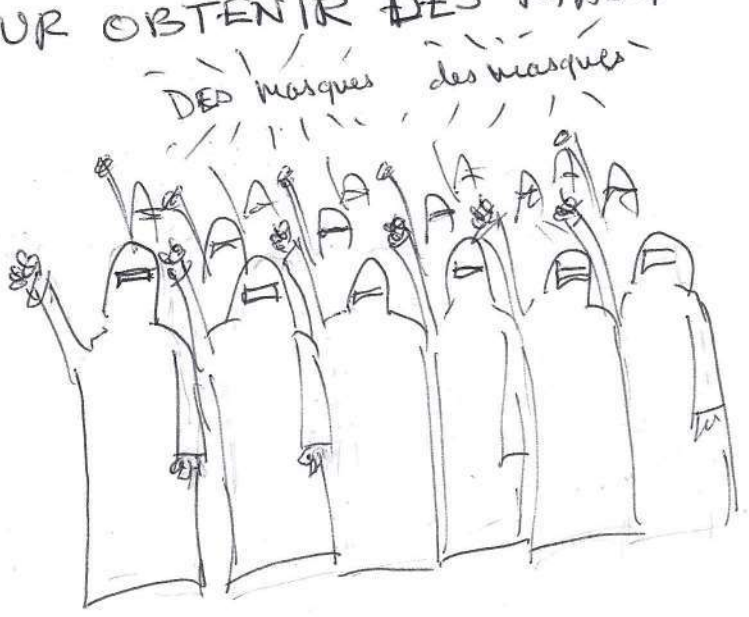 UR OBTENIR DES
DES masques des masques